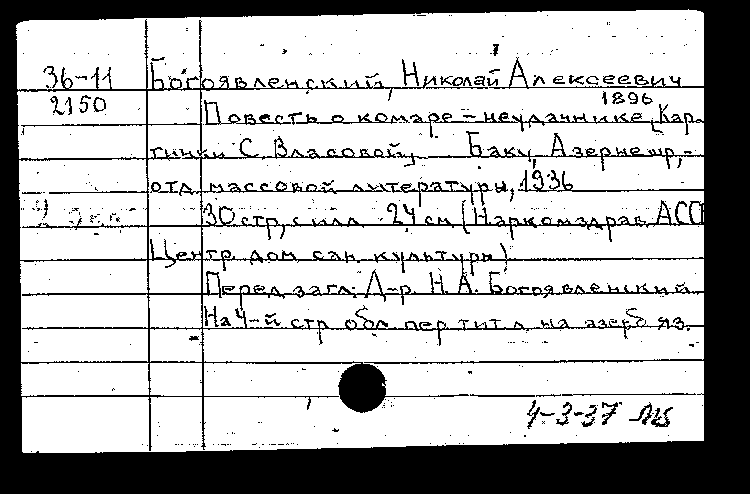 36-11 Богоявленский, Николай Алексеевич
2150 1896
Повесть о комаре-неудачнике. [Кар-
тинки С. Власовой]. Баку, Азернешр,-
отд. массовой литературы, 1936
30 стр., с илл. 24 см (Наркомздрав АССР
Центр. дом сан. культуры)
Перед загл.: Д-р. Н. А. Богоявленский
На 4-й стр. обл. пер. тит. л. на азерб. яз.
4-3-37